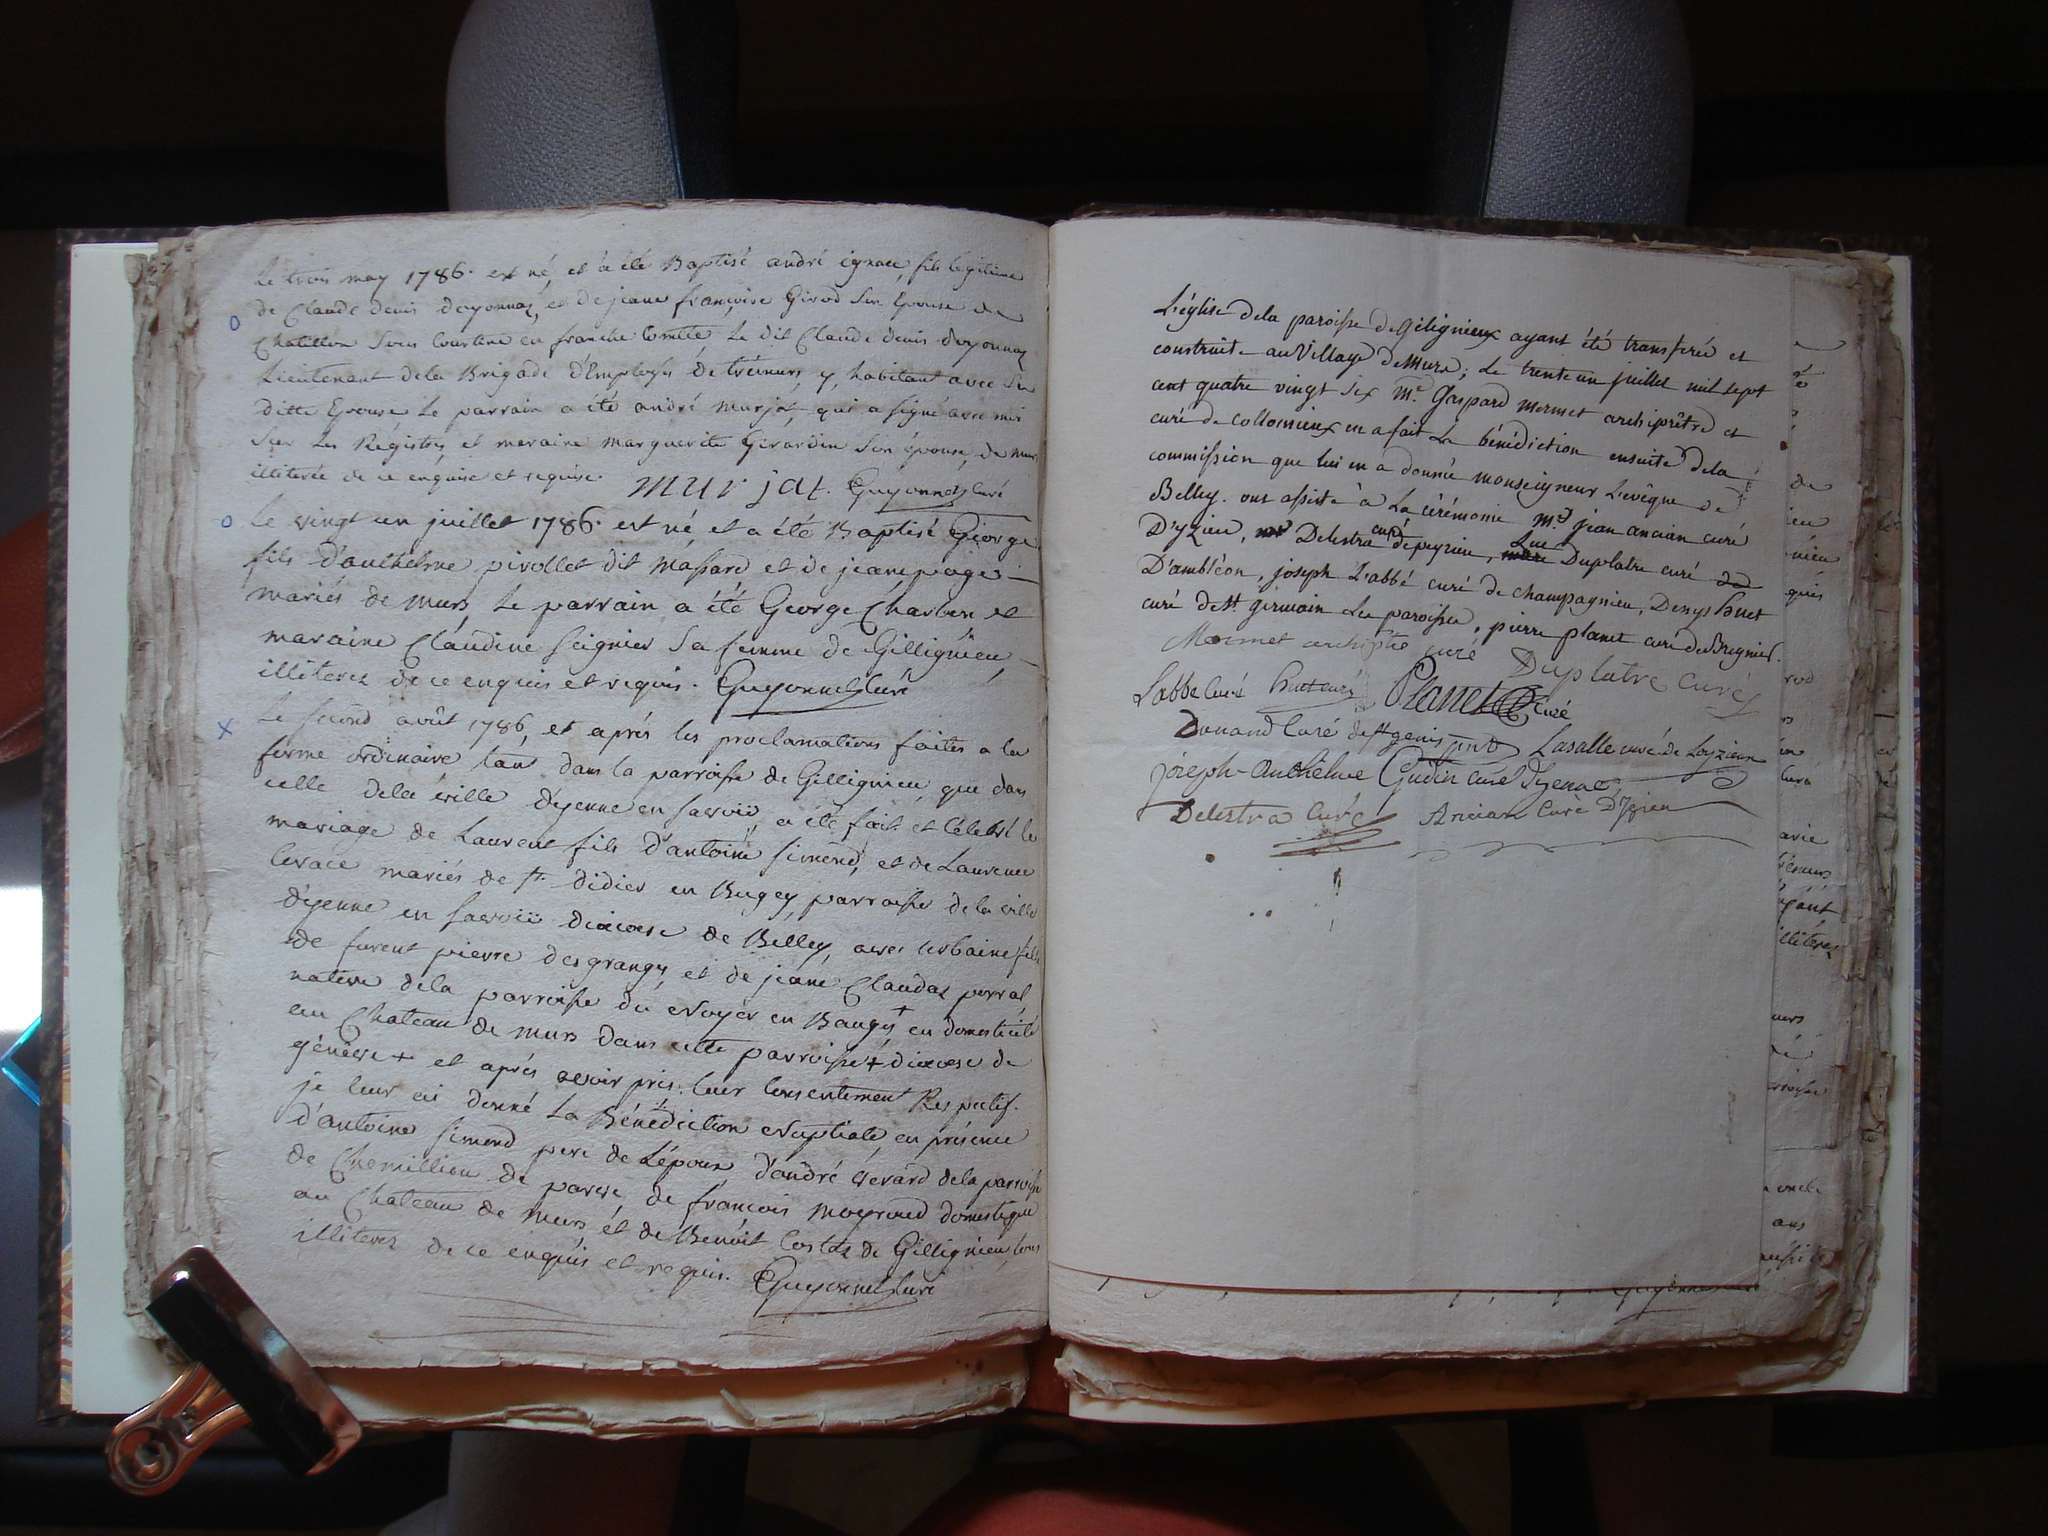 Le trois may 1786. est né, et a été Baptisé andré ignace, fils légitime
de Claude denis doyonnaz, et de jeane françoise Girod son Epouse de
Chatillon sous Courtine en franche Comté Le dit Claude denis doyonnaz
Lieutenant dela Brigade d'Employés de y habitant avec sa
ditte Epouse Le parrain a été andré murjat qui a signé avec moi
sur Les Régistres et maraine marguerite Girardin son épouse, de murs
illiterée de ce enquise et requise. murjat. Guyonnet Curé
Le vingt un juillet 1786. est né, et a été Baptisé George
fils d'anthelme pivollet dit massard et de jeane
mariés de murs, Le parrain a été George Charben et
maraine Claudine Seignier sa femme de Gillignieu,
illiterez de ce enquis et requis. Guyonnet Curé
Le second août 1786, et aprés les proclamations faites a la
forme ordinaire tant dans la parroisse de Gillignieu, que dans
celle dela ville d'yenne en savoii, a été fait et Célébré le
mariage de Laurent fils d'antoine simond, et de Laurence
mariés de st. didier en Bugey parroisse de la ville
d'yenne en savoii diocese de Belley, avec urbaine fille
de furent pierre desgranges et de jeane Claudaz perral,
native dela parroisse du noyer en Bauges + en domesticité
au Chateau de murs dans cette parroisse + diocese de
génève + et aprés avoir pris leur Consentement Respectif.
je leur ai donné La Bénédiction nuptiale, en présence
d'antoine simond pere de L'époux, d'andré dela parroisse
de Chemillieu de parves, de françois moyroud domestique
au Chateau de murs, et de Benoit Costaz de Gillignieu, tous
illiterez de ce enquis et requis. Guyonnet Curé
L'église dela paroisse de Gélignieux ayant été transferée et
construite au Village de Murs; Le trente un juillet mil sept
cent quatre vingt six Mre. Gaspard Mermet archiprêtre et
curé de Collomieux en a fait La bénédiction ensuite dela
commission que lui en a donnée monseigneur L'evêque de
Belley. ont assisté à La cérémonie Mrs jean ancian curé
D'yzieu, Delestra curé de peyrieu, Luc Duplatre curé
D'ambléon, joseph L'abbé curé de champagnieu, Denys huet
curé de St germain Les paroisses, pierre planet curé de Bregnier.
Mermet archiptre curé Duplatre curé
Labbe Curé huet curé Planet Curé
Dunand Curé de st genis Lasalle curé de Loyzieux
joseph-anthelme Gudin curé d'yenne
Delestra Curé Ancian Curé D'yzieu